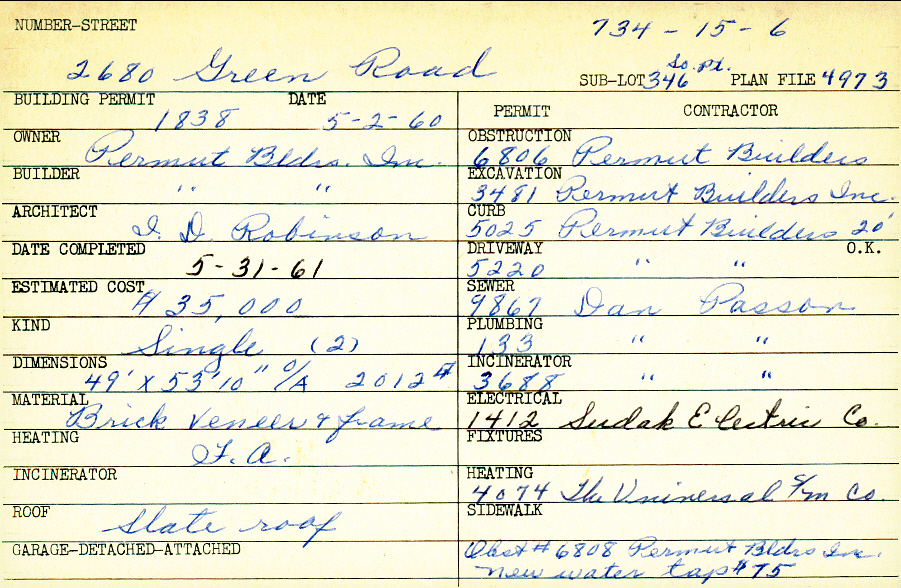 NUMBER-STREET 734-15-6
2680 Green Road SUB-LOT 346 So. pt. PLAN FILE 4973
BUILDING PERMIT DATE
1838 5-2-60
OWNER Permut Bldrs. Inc.
BUILDER " "
ARCHITECT I. D. Robinson
DATE COMPLETED 5-31-61
ESTIMATED COST $35,000
KIND Single (2)
DIMENSIONS 49' X 53'10" O/A 2012#
MATERIAL Brick Veneer & frame
HEATING F.A.
INCINERATOR
ROOF Slate roof
GARAGE-DETACHED-ATTACHED
PERMIT CONTRACTOR
OBSTRUCTION 6806 Permut Builders
EXCAVATION 3481 Permut Builders Inc.
CURB 5025 Permut Builders 20'
DRIVEWAY 5220 " " O.K.
SEWER 9867 Dan Passon
PLUMBING 133 " "
INCINERATOR 3688 " "
ELECTRICAL 1412 Sudak Electric Co.
FIXTURES
HEATING 4074 The Universal Co.
SIDEWALK
Obst # 6808 Permut Bldrs Inc.
New water tap #75